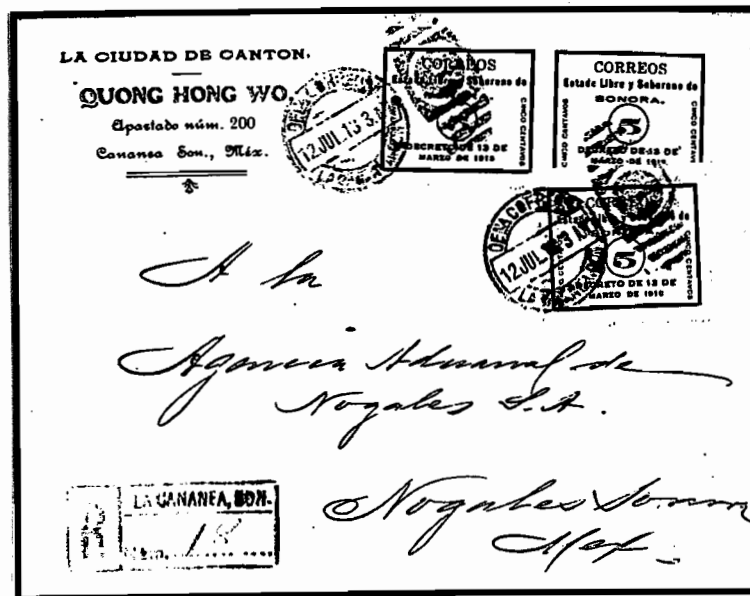 LA CIUDAD DE CANTON.
QUONG HONG WO.
Apartado núm. 200
Cananea Son., Méx.
CORREOS
Estado Libre y Soberano de
CINCO CENTAVOS
DECRETO DE 13 DE
MARZO DE 1913
CORREOS
Estado Libre y Soberano de
SONORA.
CINCO CENTAVOS
5
CINCO CENTAVOS
DECRETO DE 13 DE
MARZO DE 191
12 JUL. 13 3
12 JUL. 13 3 A.M
CORRE
Estado Libre y Soberano de
5
CINCO CENTAVOS
DECRETO DE 13 DE
MARZO DE 1913
A la
Agencia Aduanal de
Nogales S.A.
Nogales Sonora
Mex.
R
LA CANANEA, SON.
Núm. 18